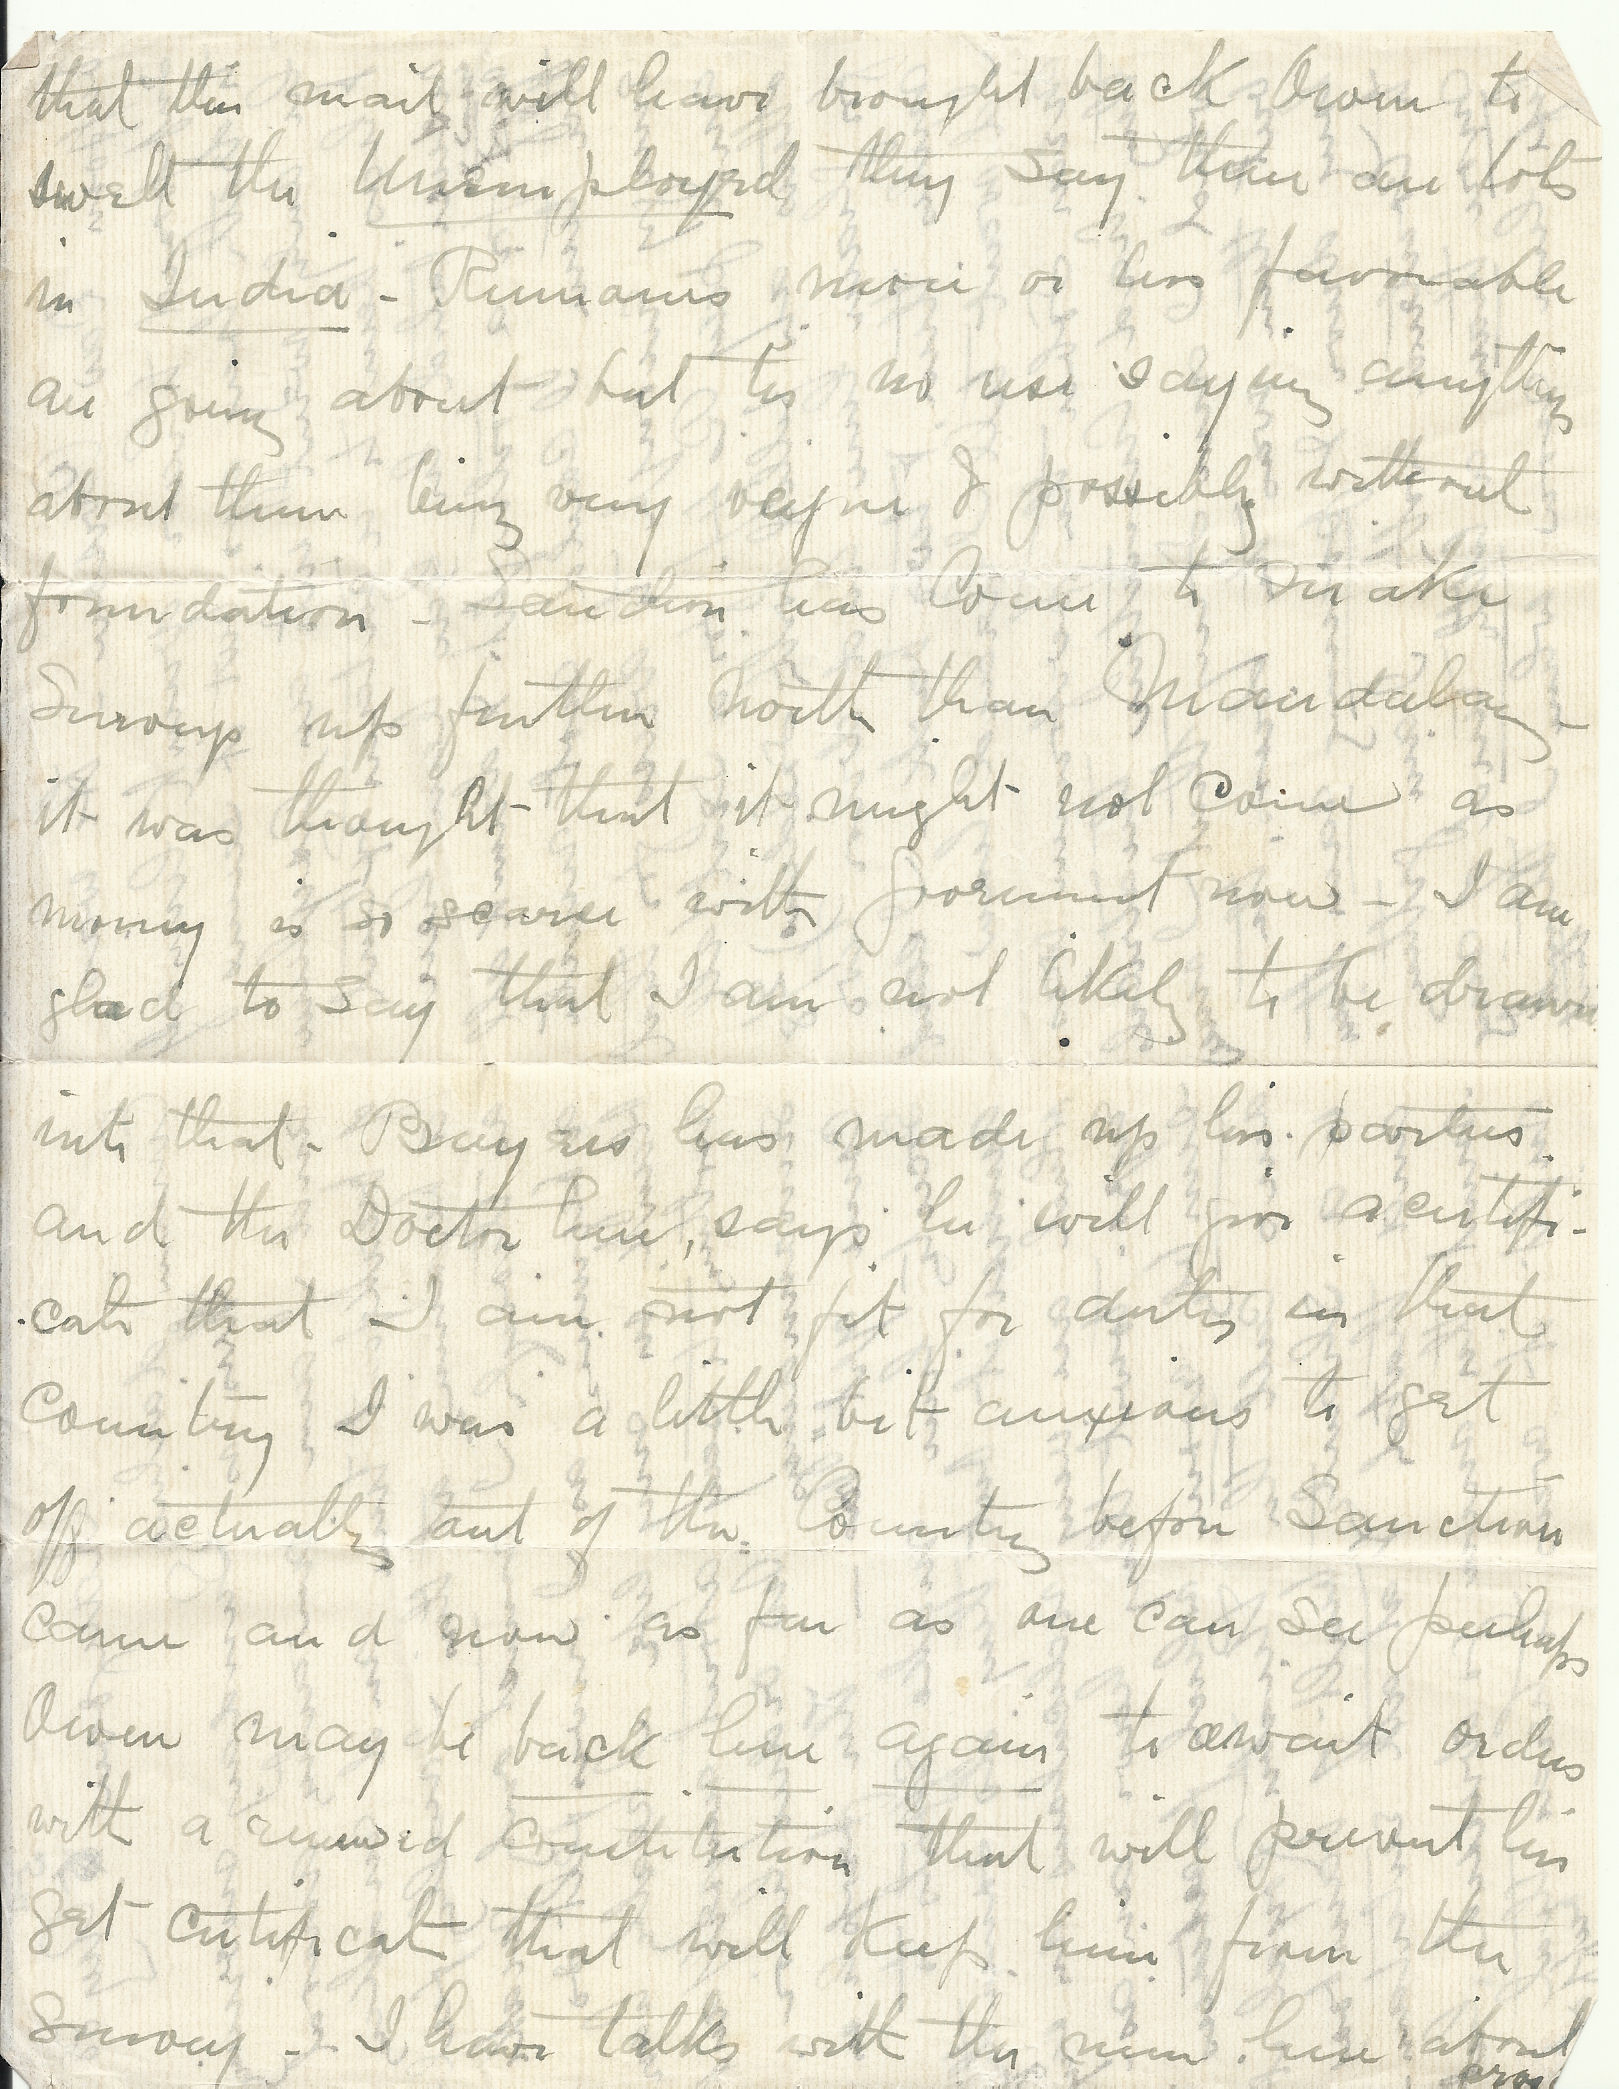 that this mail will have brought back Owen to
swell the Unemployed they say there are lots
in India - Rumours more or less favorable
are going about but tis no use saying anything
about them being very vague & possibly without
foundation - Sanction has Come to make
Surveys up further North than Mandalay -
it was thought that it might not come as
money is so scarce with Government now - I am
glad to say that I am not likely to be drawn
into that - Bayers has made up his parties
and the Doctor here, says he will give a certifi-
-cate that I am not fit for duty in that
Country I was a little bit anxious to get
off actually out of the Country before Sanction
came and now as far as one can see perhaps
Owen may be back here again to await orders
with a renewed constitution that will prevent his
get certificate that will keep him from the
Survey - I have talks with the men here about